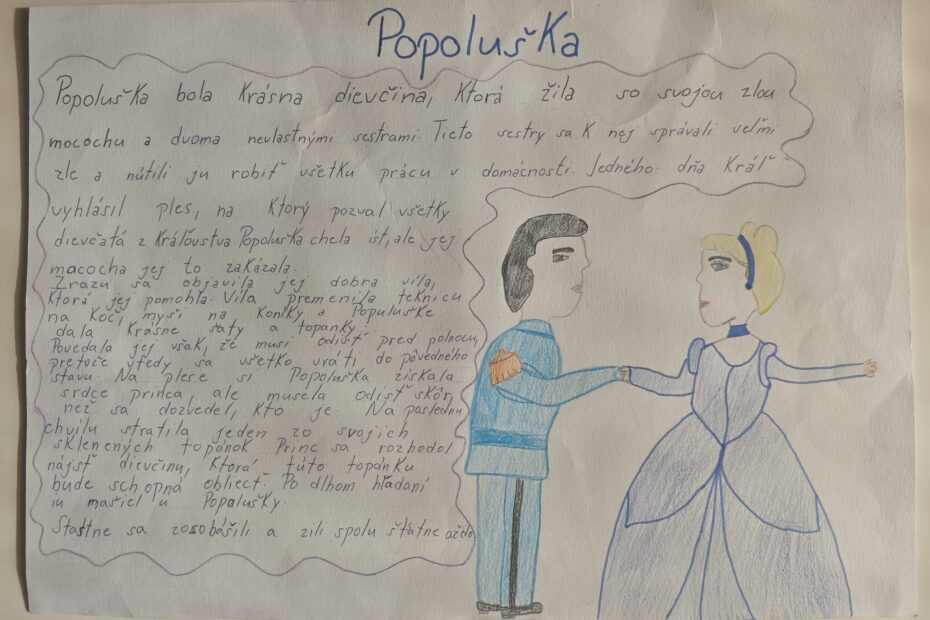 Popoluška
Popoluška bola krásna dievčina, ktorá žila so svojou zlou
mocochu a dvoma nevlastnými sestrami Tieto sestry sa k nej správali veľmi
zle a nútili ju robiť všetku prácu v domácnosti. Jedného dňa kráľ
vyhlásil ples, na ktorý pozval všetky
dievčatá z Kráľovstva. Popoluška chela ísť, ale jej
macocha jej to zakázala.
Zrazu sa objavila jej dobra víla,
ktorá jej pomohla. Víla premenila tekvicu
na koč, myši na koníky a Popoluške
dala krásne šaty a topánky.
Povedala jej však, že musí odísť pred polnocou,
pretože vtedy sa všetko vráti do pôvedného
stavu. Na plese si Popoluška získala
srdce princa, ale musela odísť skôr,
než sa dozvedel, kto je. Na poslednú
chvíľu stratila jeden zo svojich
sklenených topánok Princ sa rozhodol
nájsť dievčinu, ktorá túto topánku
bude schopná obliecť. Po dlhom hľadaní
ju našiel u Popolušky.
Štastne sa zosobášili a zili spolu šťatne